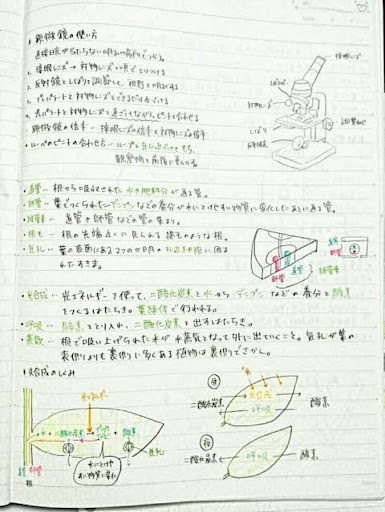 顕微鏡の使い方
直接日光が当たらない明るい場所でつかう。
1. 接眼レンズ → 対物レンズの順でとりつける
2. 反射鏡としぼりを調節して、視野を明るくする
3. プレパラートと対物レンズをできるだけ近づける
4. プレパラートと対物レンズを遠ざけながらピントを合わせる
顕微鏡の倍率 … 接眼レンズの倍率×対物レンズの倍率
・ルーペのピントの合わせ方 … ルーペを目に近づけてもち、
観察物を前後に動かす。
接眼レンズ
対物レンズ
しぼり
反射鏡
調節ねじ
・道管 … 根から吸収された水や肥料分が通る管。
・師管 … 葉でつくられたデンプンなどの養分が水にとけやすい物質に変化したあとに通る管。
・維管束 … 道管や師管などの管の集まり。
・根毛 … 根の先端近くに見られる綿毛のような根。
・気孔 … 葉の表面にある2つの三日月の孔辺細胞に囲ま
れたすきま。
道管
師管
維管束
・光合成 … 光エネルギーを使って、二酸化炭素と水からデンプンなどの養分と酸素
をつくるはたらき。葉緑体で行われる。
・呼吸 … 酸素をとり入れ、二酸化炭素を出すはたらき。
・蒸散 … 根で吸い上げられた水が水蒸気となって外に出ていくこと。気孔が葉の
表側よりも裏側に多くある植物は裏側でさかん。
光合成のしくみ
光エネルギー
水 + 二酸化炭素 → デンプンなど + 酸素
気孔
水にとけやすい物質に変化
道管 師管
昼
光合成
二酸化炭素
呼吸
酸素
夜
二酸化炭素
呼吸
酸素